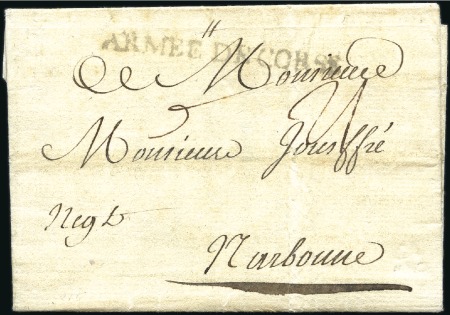 ARMÉE DE CORSE
A Monsieur
Monsieur Jouffré
Negt
Narbonne